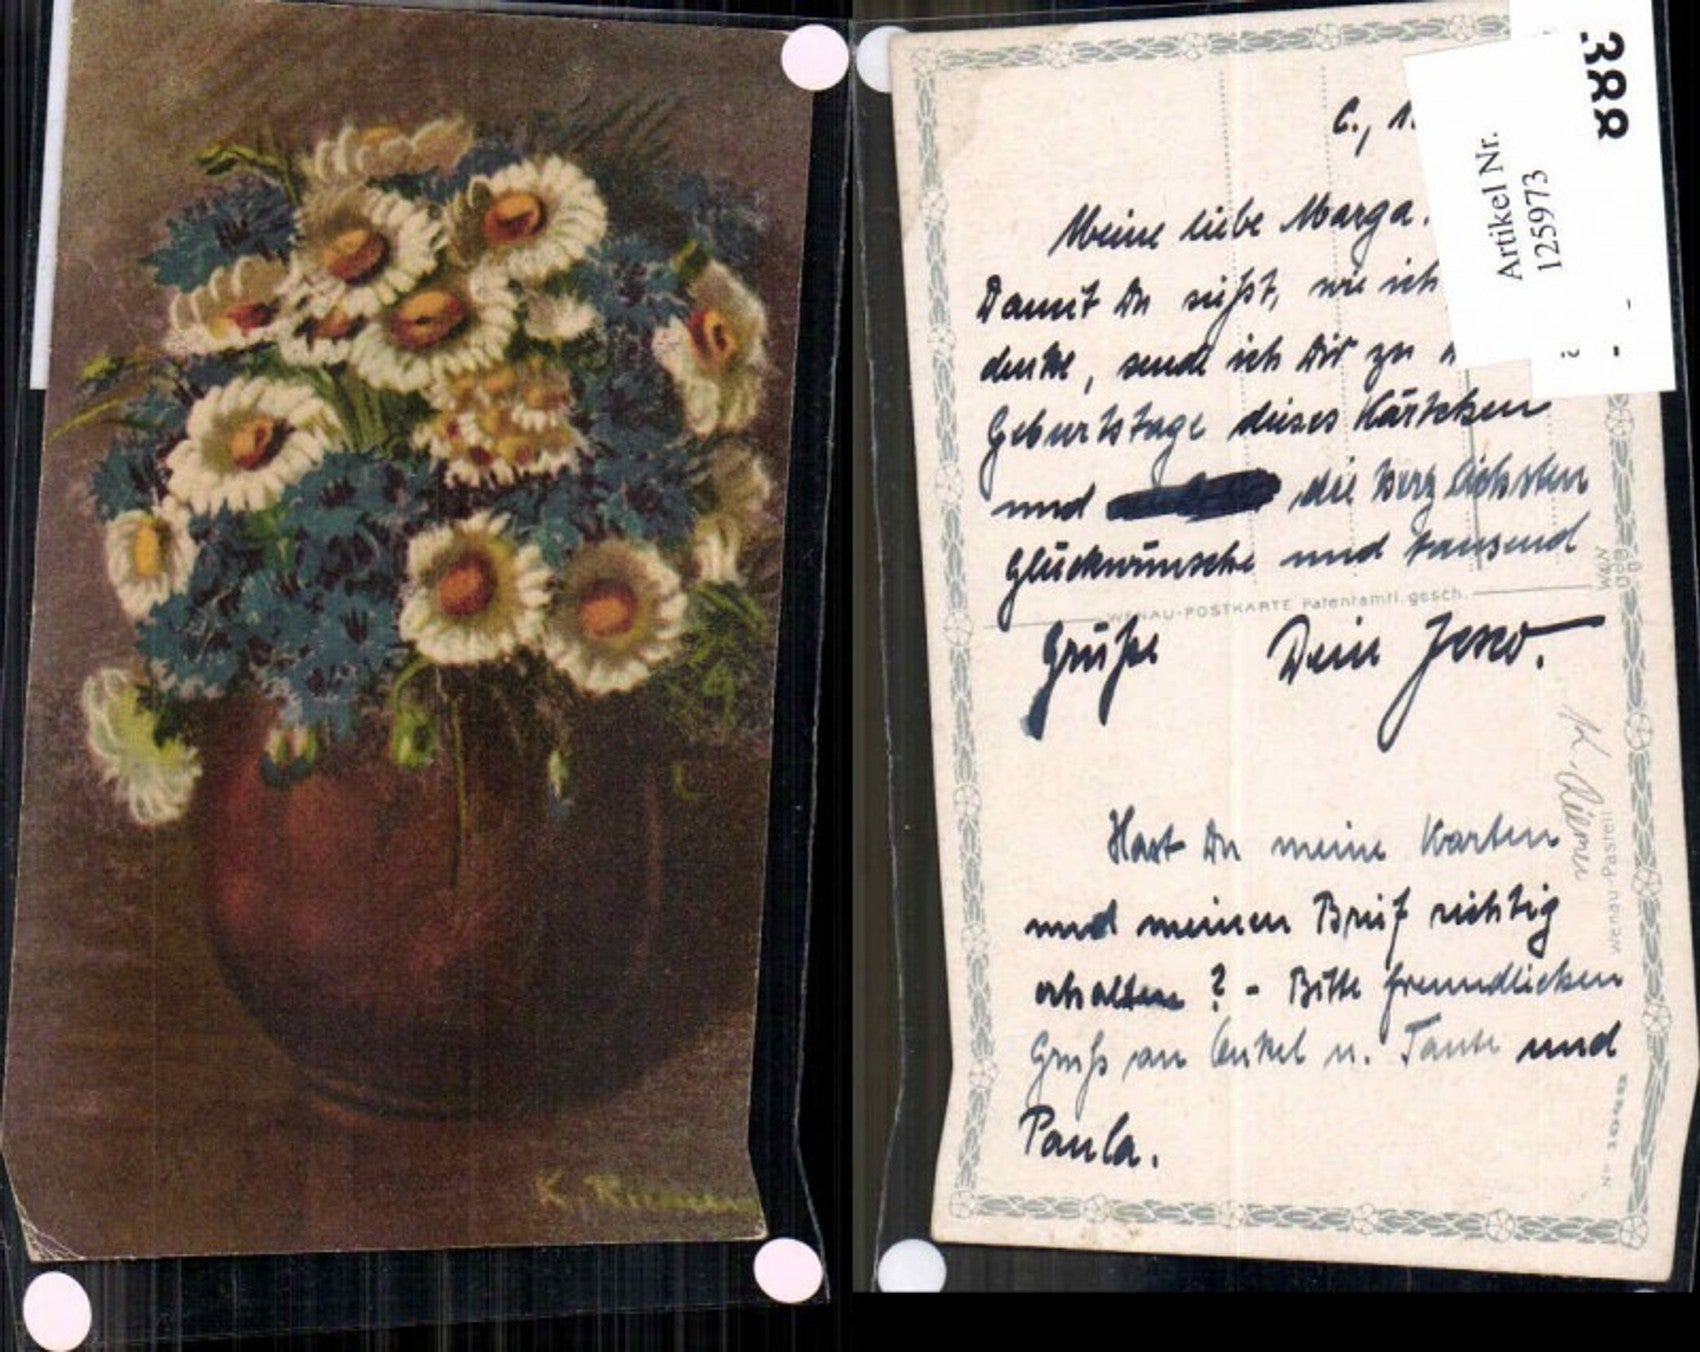 K. Riemen
388
Artikel Nr.
125973
C., 1.
Meine liebe Marga.
Damit Du siehst, wie ich
denke, sende ich Dir zu
Geburtstage dieses Kärtchen
und die herzlichsten
Glückwünsche und tausend
WENAU-POSTKARTE Patentamtl. gesch.
Grüße Dein Jesco.
K. Riemen
Wenau-Pastell
Hast Du meine Karten
und meinen Brief richtig
erhalten? - Bitte freundlichen
Gruß an Onkel u. Tante und
Paula.